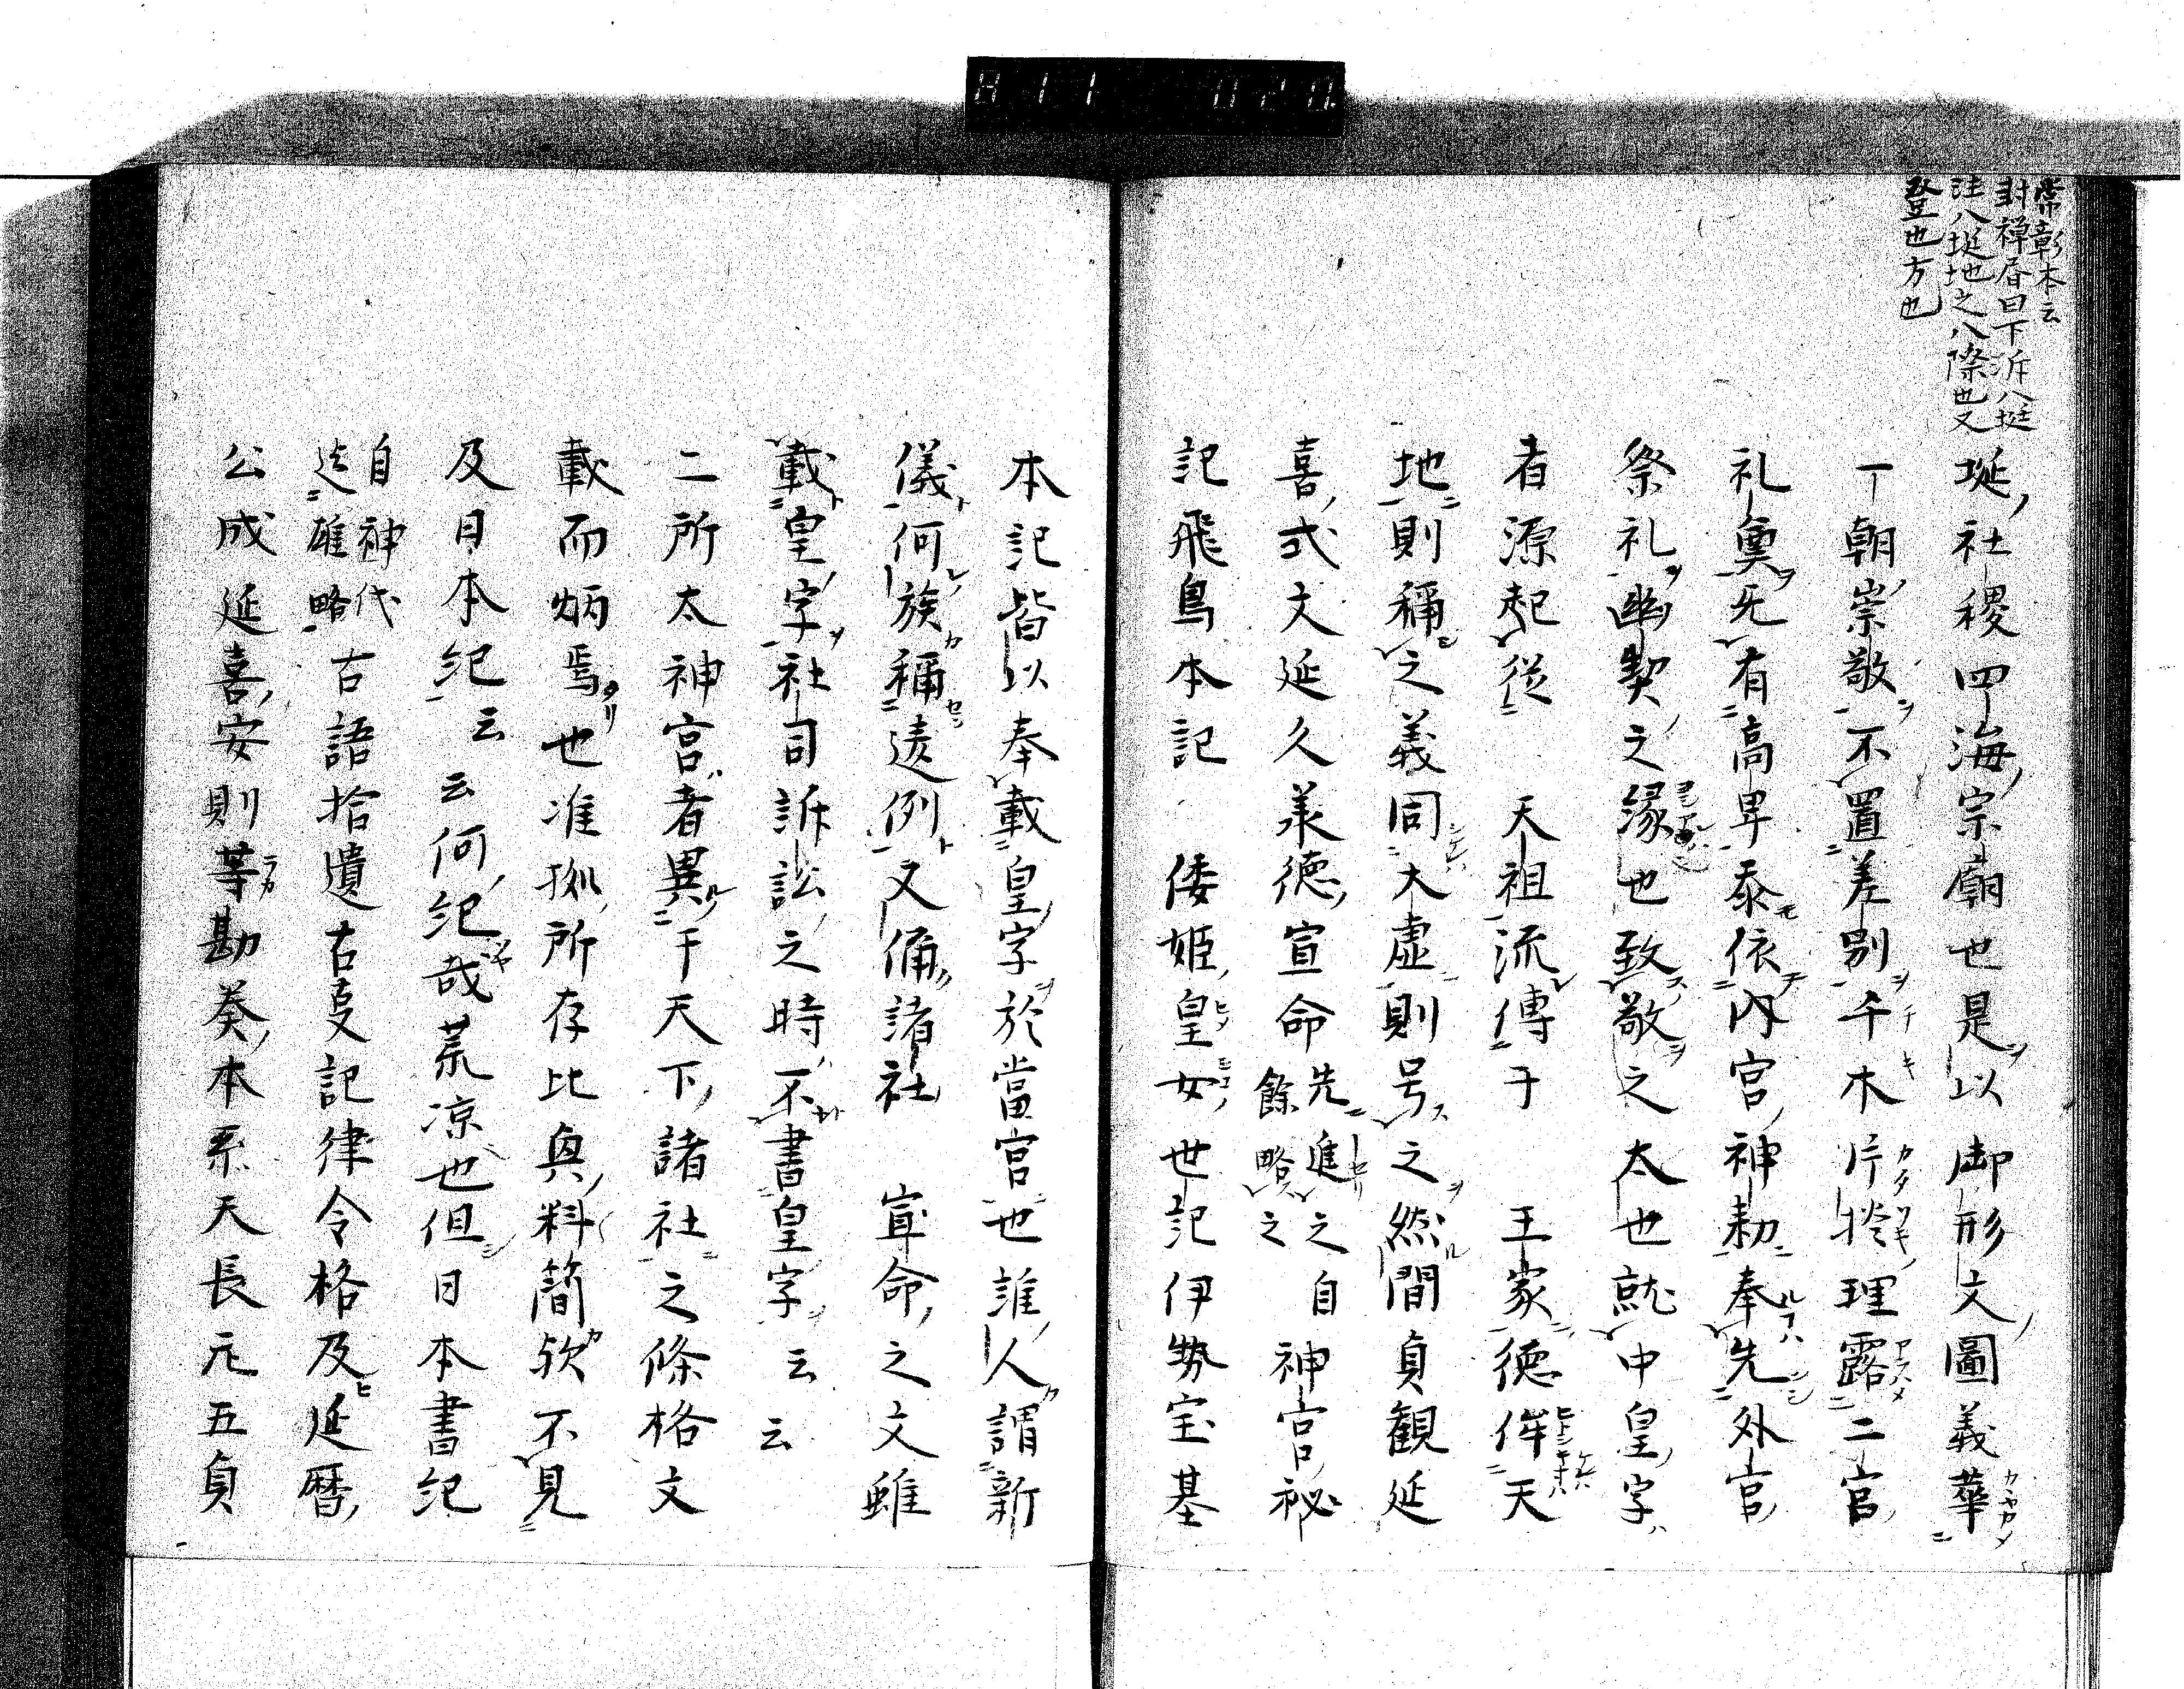 常彰本云
封禅局曰下泝八挻
注八埏地之八際也又
登也方也
埏社稷四海宗廟也是以御形文圖義華
一朝崇敬不置差別千木片捶理露二宮
礼奠无有高卑忝依内宮神勅奉先外宮
祭礼幽契之縁也致敬之太也就中皇字
者源起従 天祖流傳于 王家徳侔天
地則稱之義同大虚則号之然間貞観延
喜式文延久承徳宣命先進之自神宮秘
餘略之
記飛鳥本記 倭姫皇女世記伊勢宝基
本記皆以奉載皇字於當宮也誰人謂新
儀何族稱違例又俑諸社 宣命之文雖
載皇字社司訴訟之時不書皇字云云
二所太神宮者異于天下諸社之條格文
載而炳焉也准拠所存比興料簡欤不見
及日本紀云云何紀哉荒凉也但日本書紀
自神代
迄雄略古語拾遺古叓記律令格及延暦
公成延喜安則等勘奏本系天長元五貞